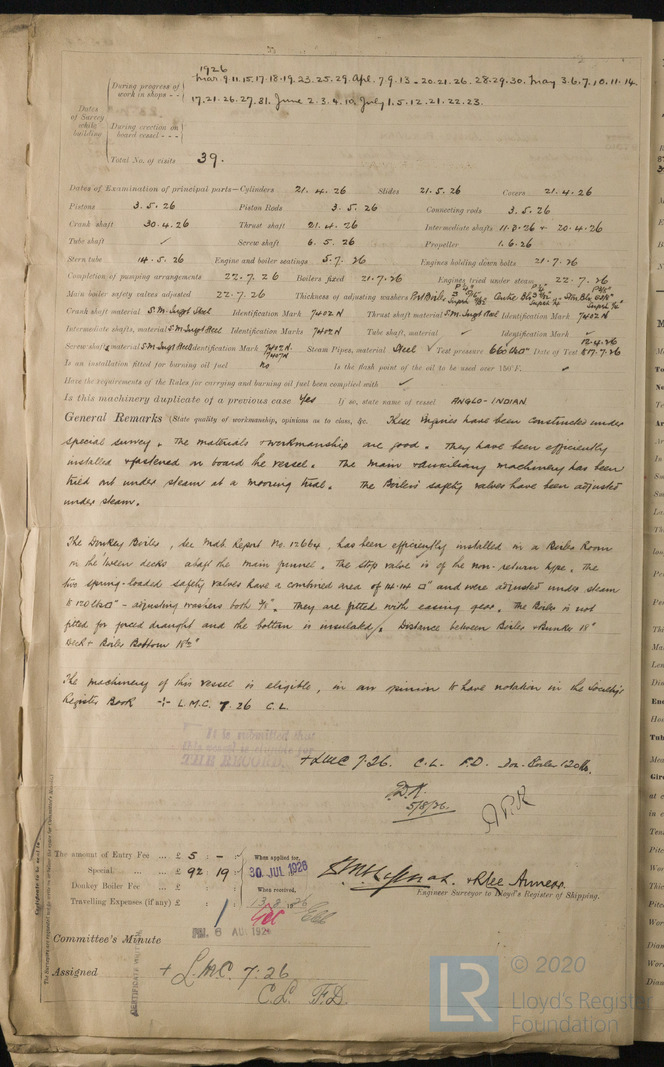 1926
During progress of work in shops - - Mar. 9. 11. 15. 17. 18. 19. 23. 25. 29. Apl. 7. 9. 13. 20. 21. 26. 28. 29. 30. May 3. 6. 7. 10. 11. 14.
17. 21. 26. 27. 31. June 2. 3. 4. 10. July 1. 5. 12. 21. 22. 23.
Dates of Survey while building
During erection on board vessel - - -
Total No. of visits 39.
Dates of Examination of principal parts—Cylinders 21. 4. 26 Slides 21. 5. 26 Covers 21. 4. 26
Pistons 3. 5. 26 Piston Rods 3. 5. 26 Connecting rods 3. 5. 26
Crank shaft 30. 4. 26 Thrust shaft 21. 4. 26 Intermediate shafts 20. 4. 26
Tube shaft ✓ Screw shaft 6. 5. 26 Propeller 1. 6. 26
Stern tube 14. 5. 26 Engine and boiler seatings 5. 7. 26 Engines holding down bolts 21. 7. 26
Completion of pumping arrangements 22. 7. 26 Boilers fixed 21. 7. 26 Engines tried under steam 22. 7. 26
Main boiler safety valves adjusted 22. 7. 26 Thickness of adjusting washers
Crank shaft material S.M. Ingot Steel Identification Mark 7402 N Thrust shaft material S.M. Ingot Steel Identification Mark 7402 N
Intermediate shafts, material S.M. Ingot Steel Identification Marks 7402 N Tube shaft, material ✓ Identification Mark ✓
Screw shaft, material S.M. Ingot Steel Identification Mark 7402 N. Steam Pipes, material Steel ✓ Test pressure 660 lbs □" Date of Test
Is an installation fitted for burning oil fuel No Is the flash point of the oil to be used over 150°F. ✓
Have the requirements of the Rules for carrying and burning oil fuel been complied with ✓
Is this machinery duplicate of a previous case Yes If so, state name of vessel ANGLO-INDIAN
General Remarks (State quality of workmanship, opinions as to class, &c. These Engines have been constructed under
special survey. The materials & workmanship are good. They have been efficiently
installed & fastened on board the vessel. The main & auxiliary machinery has been
tried out under steam at a mooring trial. The Boilers safety valves have been adjusted
under steam.
The Donkey Boiler, see Mdb Report No. 12664, has been efficiently installed in a Boiler Room
in the 'tween decks abaft the main funnel. The stop valve is of the non-return type. The
two spring-loaded safety valves have a combined area of 14.14 □" and were adjusted under steam
to 120 lbs □" - adjusting washers both 3/8". They are fitted with easing gear. The Boiler is not
fitted for forced draught and the bottom is insulated. Distance between Boiler & Bunker 18"
Deck & Boiler Bottom 18½"
The machinery of this vessel is eligible, in our opinion to have notation in the Society's
Register Book + L.M.C. 7. 26 C.L.
It is submitted that
this vessel is eligible for
THE RECORD.
+ LMC 7. 26. C.L. F.D. Don. Boiler 120 lbs.
5/8/26.
The amount of Entry Fee ... £ 5 : - : When applied for,
Special ... £ 92 : 19 : 30 JUL 1926
Donkey Boiler Fee ... £ : : When received,
Travelling Expenses (if any) £ : : 13. 8. 1926
Engineer Surveyor to Lloyd's Register of Shipping.
Committee's Minute FRI. 6 AUG 1926
Assigned + L.M.C. 7. 26
C.L. F.D.
CERTIFICATE WRITTEN
LR
© 2020
Lloyd's Register
Foundation